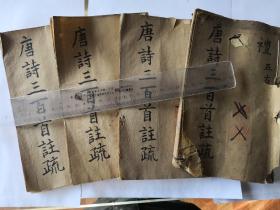 唐詩三百首註疏
唐詩三百首註疏
唐詩三百首註疏
唐詩三百首註疏